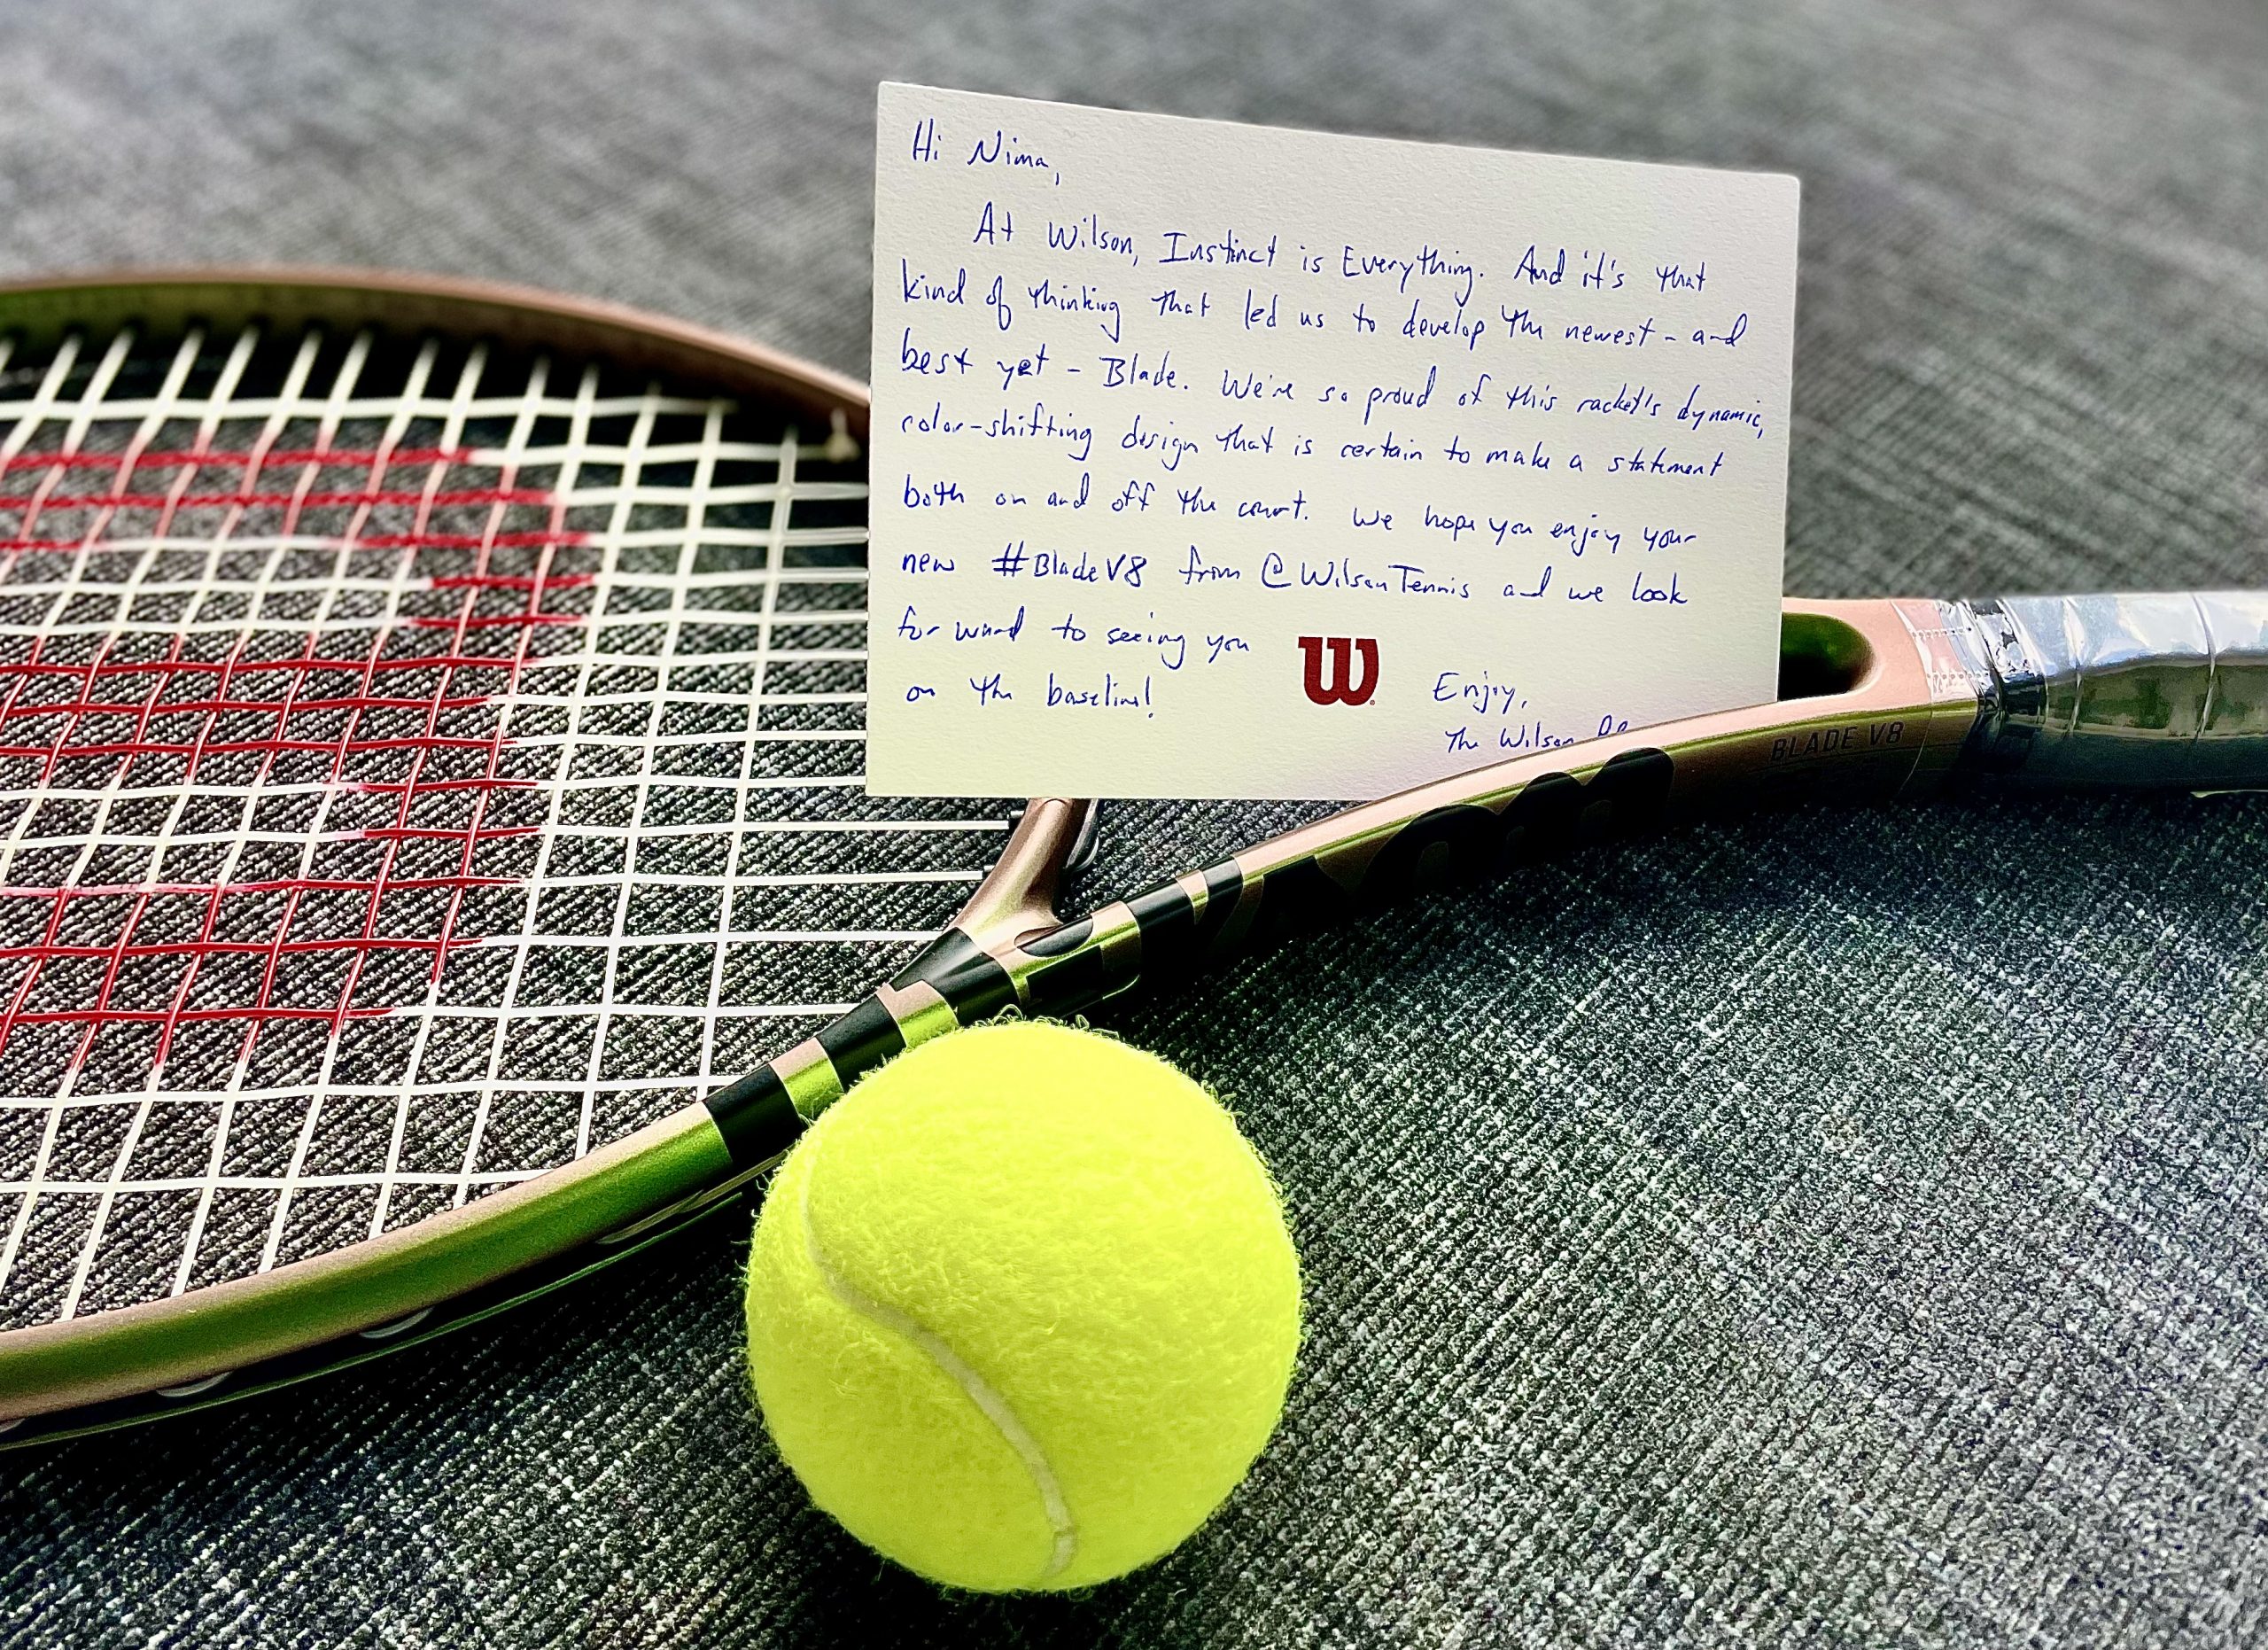 Hi Nima,
At Wilson, Instinct is Everything. And it's that
kind of thinking that led us to develop the newest - and
best yet - Blade. We're so proud of this racket's dynamic,
color-shifting design that is certain to make a statement
both on and off the court. We hope you enjoy your
new #BladeV8 from @WilsonTennis and we look
forward to seeing you
on the baseline!
W
Enjoy,
The Wilson
BLADE V8